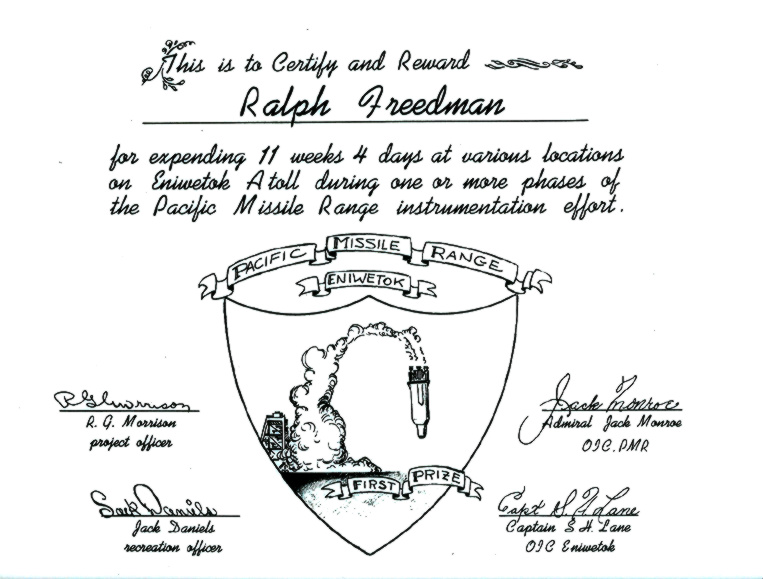 This is to Certify and Reward
Ralph Freedman
for expending 11 weeks 4 days at various locations
on Eniwetok Atoll during one or more phases of
the Pacific Missile Range instrumentation effort.
PACIFIC MISSILE RANGE
ENIWETOK
FIRST PRIZE
R G Morrison
R. G. Morrison
project officer
Jack Monroe
Admiral Jack Monroe
OIC. PMR
Jack Daniels
Jack Daniels
recreation officer
Capt S. H. Lane
Captain S H. Lane
OIC Eniwetok